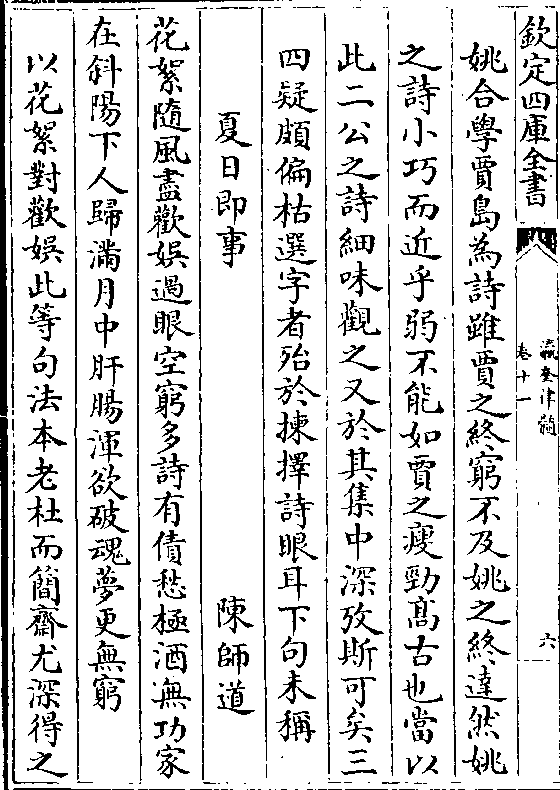 欽定四庫全書
瀛奎律髓
卷十一
六
姚合學賈島為詩雖賈之終窮不及姚之終達然姚
之詩小巧而近乎弱不能如賈之瘦勁髙古也當以
此二公之詩細味觀之又於其集中深攷斯可矣三
四疑頗偏枯選字者殆於揀擇詩眼耳下句未稱
夏日即事 陳師道
花絮隨風盡歡娱過眼空窮多詩有債愁極酒無功家
在斜陽下人歸滿月中肝腸渾欲破魂夢更無窮
以花絮對歡娱此等句法本老杜而簡齋尤深得之